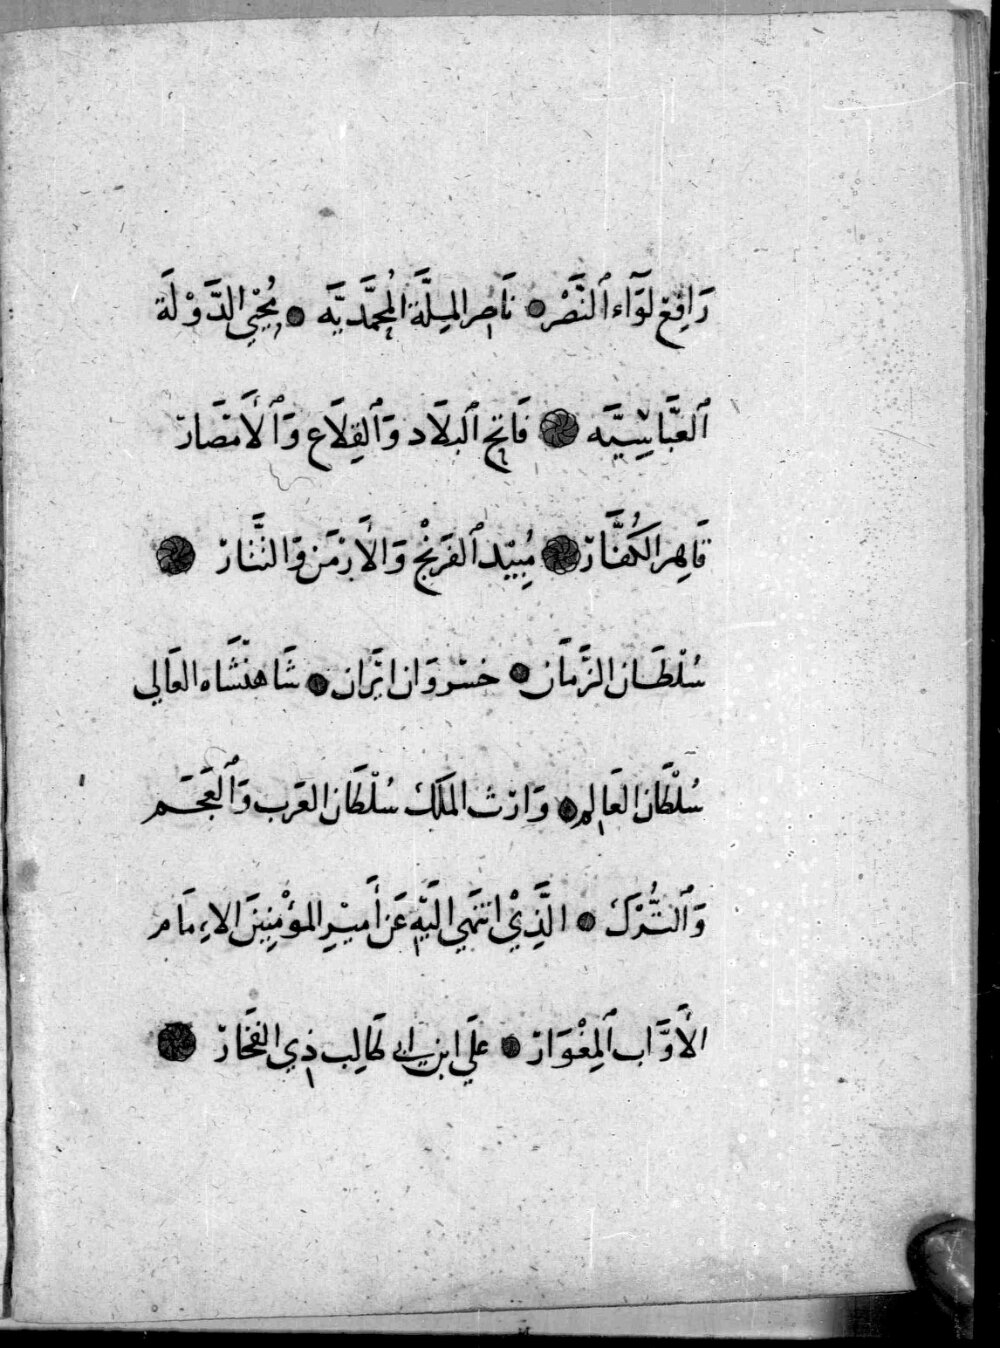 رَافِع لِوَآء ٱلنَّصْر نَاصِر المِلَّة المُحَمَّديَّه مُحْيِي الدَّوْلَة
ٱلعَبَّاسِيَّه فَاتِح ٱلبِلَاد وَٱلقِلَاع وَٱلأَمْصَار
قَاهِر الكُفَّار مُبِيْد ٱلفَرَنْج وَالأَرْمَن وَالتَّتَار
سُلْطَان الزَّمَان خسْروَان ايْرَان شَاهنْشَاه العَالي
سُلْطَان العَالم وَارث المَلك سُلْطَان العَرب وَٱلعَجَم
وَٱلتُّرْك الَّذِيْ انتَمَي اليْه عَن أَميْرِ المؤْمِنِيْنَ الاِمَام
الأَوَّاب ٱلمِغْوَار عَلي ابن ابي طَالِب ذِي الفَخَار